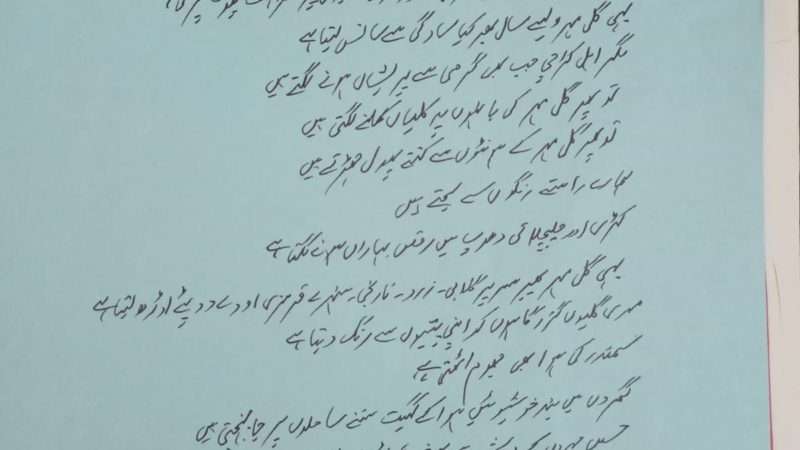 یہی گل مہر ویسے سال بھر کیا سادگی سے سانس لیتا ہے
مگر اہل کراچی جب بھی گرمی سے پریشاں ہونے لگتے ہیں
تو پھر گل مہر کی باہوں پہ کلیاں کھلنے لگتی ہیں
تو پھر گل مہر کے ہونٹوں سے کتنے پھول جھڑتے ہیں
ہمارے راستے رنگوں سے سجتے ہیں
کڑی اور چلچلاتی دھوپ میں رقص بہاراں ہونے لگتا ہے
یہی گل مہر پھر سر پر گلابی۔ زرد۔ نارنجی۔ سنہرے قرمزی اودے دوپٹے اوڑھ لیتا ہے
مری گلیوں گزرگاہوں کو اپنی پتیوں سے رنگ دیتا ہے
سمندر کی ہوا بھی جھوم اٹھتی ہے
گھروں میں بند خوشبوئیں ہوا کے گیت سننے ساحلوں پر جا پہنچتی ہیں